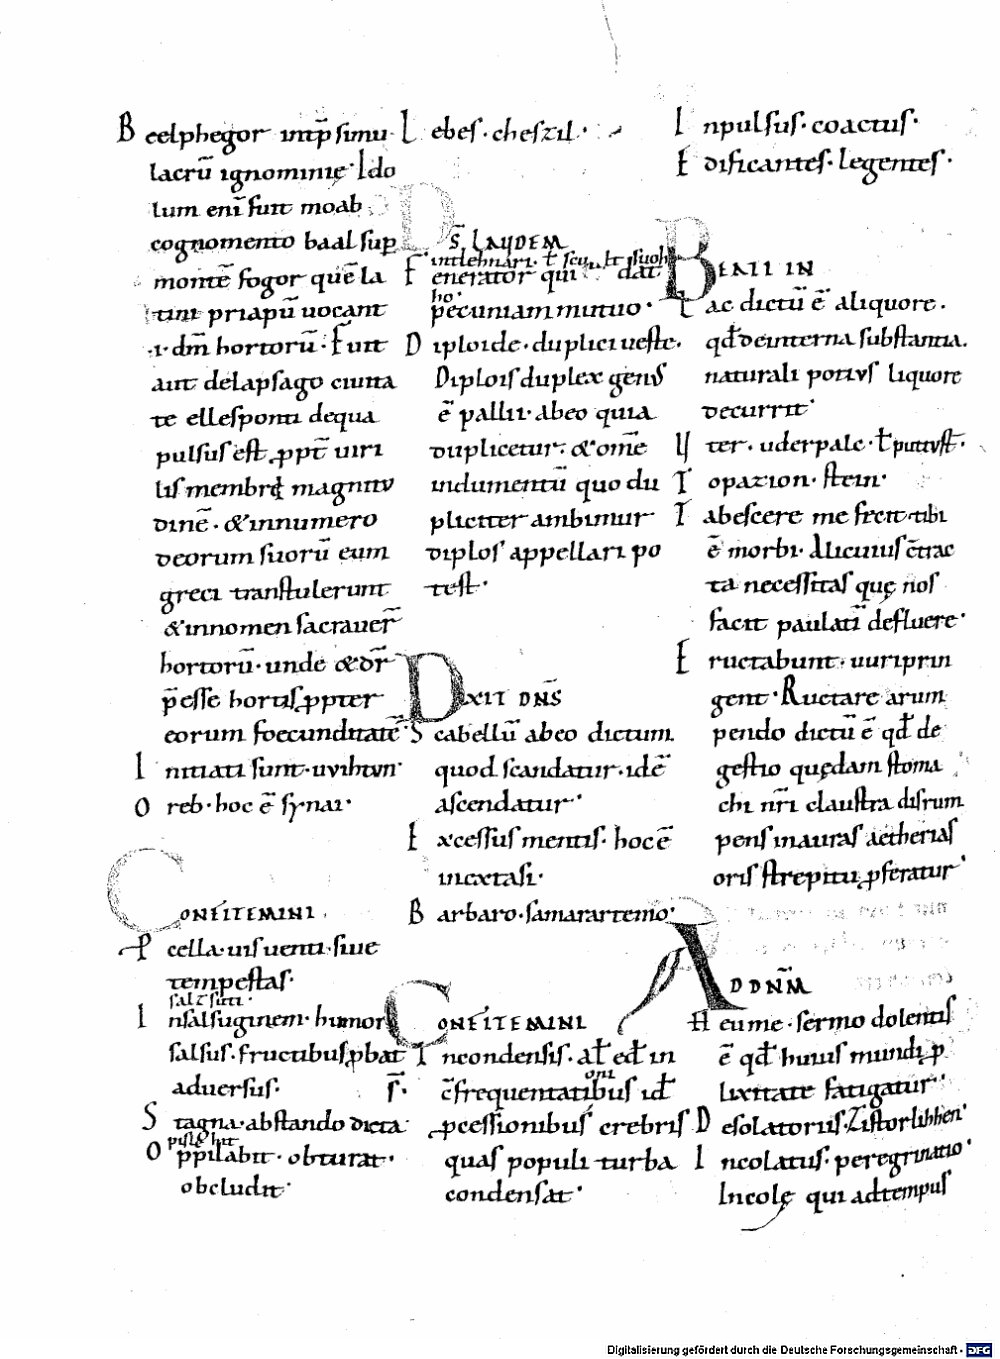 Beelphegor int̄p simu
lacrū ignominię· Ido
lum enī fuit moab
cognomento baal sup
montē fogor quē la
tini priapū uocant
·i· dm̄ hortorū· Fuit
aut̄ delapsago ciuita
te ellesponti dequa
pulsus est ꝓpt̄ uiri
lis membri magnitu
dinē· & innumero
deorum suorū eum
greci transtulerunt
& innomen sacrauer̄
hortorū· unde & dr̄
p̄esse hortis ꝓpter
eorum foecunditatē
Initiati sunt· uuihtun·
Oreb· hoc ē synai·
CONFITEMINI
Pcella· uis uenti· siue
tempestas·
salzsuti·
Insalsuginem· humor
salsus· fructibus ꝓbat
aduersus·
Stagna· abstando dicta·
Oppilabit· obturat·
obcludit·
Lebes· cheszil·
DS̄ LAUDEM
Fenerator qui dat
pecuniam mutuo·
Diploide· duplici ueste·
Diplois duplex genus
ē pallii· abeo quia
duplicetur· & omē
indumentū quo du
pliciter ambimur
diplos appellari po
test·
DIXIT DNS̄
Scabellū abeo dictum
quod scandatur· idē
ascendatur·
Excessus mentis· hoc ē
inextasi·
Barbaro· samarartemo·
CONFITEMINI
Incondensis· at̄ ed̄ in
s̄· c̄frequentatibus id̄
oni
ꝓcessionibus crebris
quas populi turba
condensat·
Inpulsus· coactus·
Edificantes· legentes·
BEATI IN
Lac dictū ē aliquore·
qd̄ deinterna substantia.
naturali potius liquore
decurrit·
Uter· uderpalc· t̄ puttust̄·
Topazion· stein·
Tabescere me fecit· tibi
ē morbi· Alicuius c̄trac
ta necessitas quę nos
facit paulatī defluere·
Eructabunt· uuriprin
gent· Ructare arum
pendo dictū ē qd̄ de
gestio quędam stoma
chi nr̄i claustra disrum
pens inauras aetherias
oris strepitu ꝓferatur·
AD DNM̄
Heume· sermo dolentis
ē qd̄ huius mundi ꝓ
lixitate fatigatur·
Desolatoriis· Zistorlihhen·
Incolatus· peregrinatio·
Incolę qui adtempus
Digitalisierung gefördert durch die Deutsche Forschungsgemeinschaft - DFG